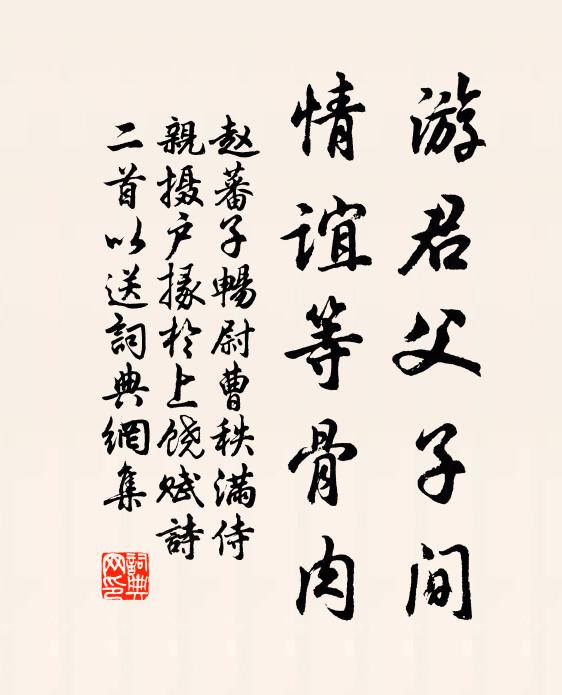 游君父子间
情谊等骨肉
赵蕃子畅尉曹秩满侍
親摄户掾於上饶赋詩
二首以送詞典網集
詞典网印